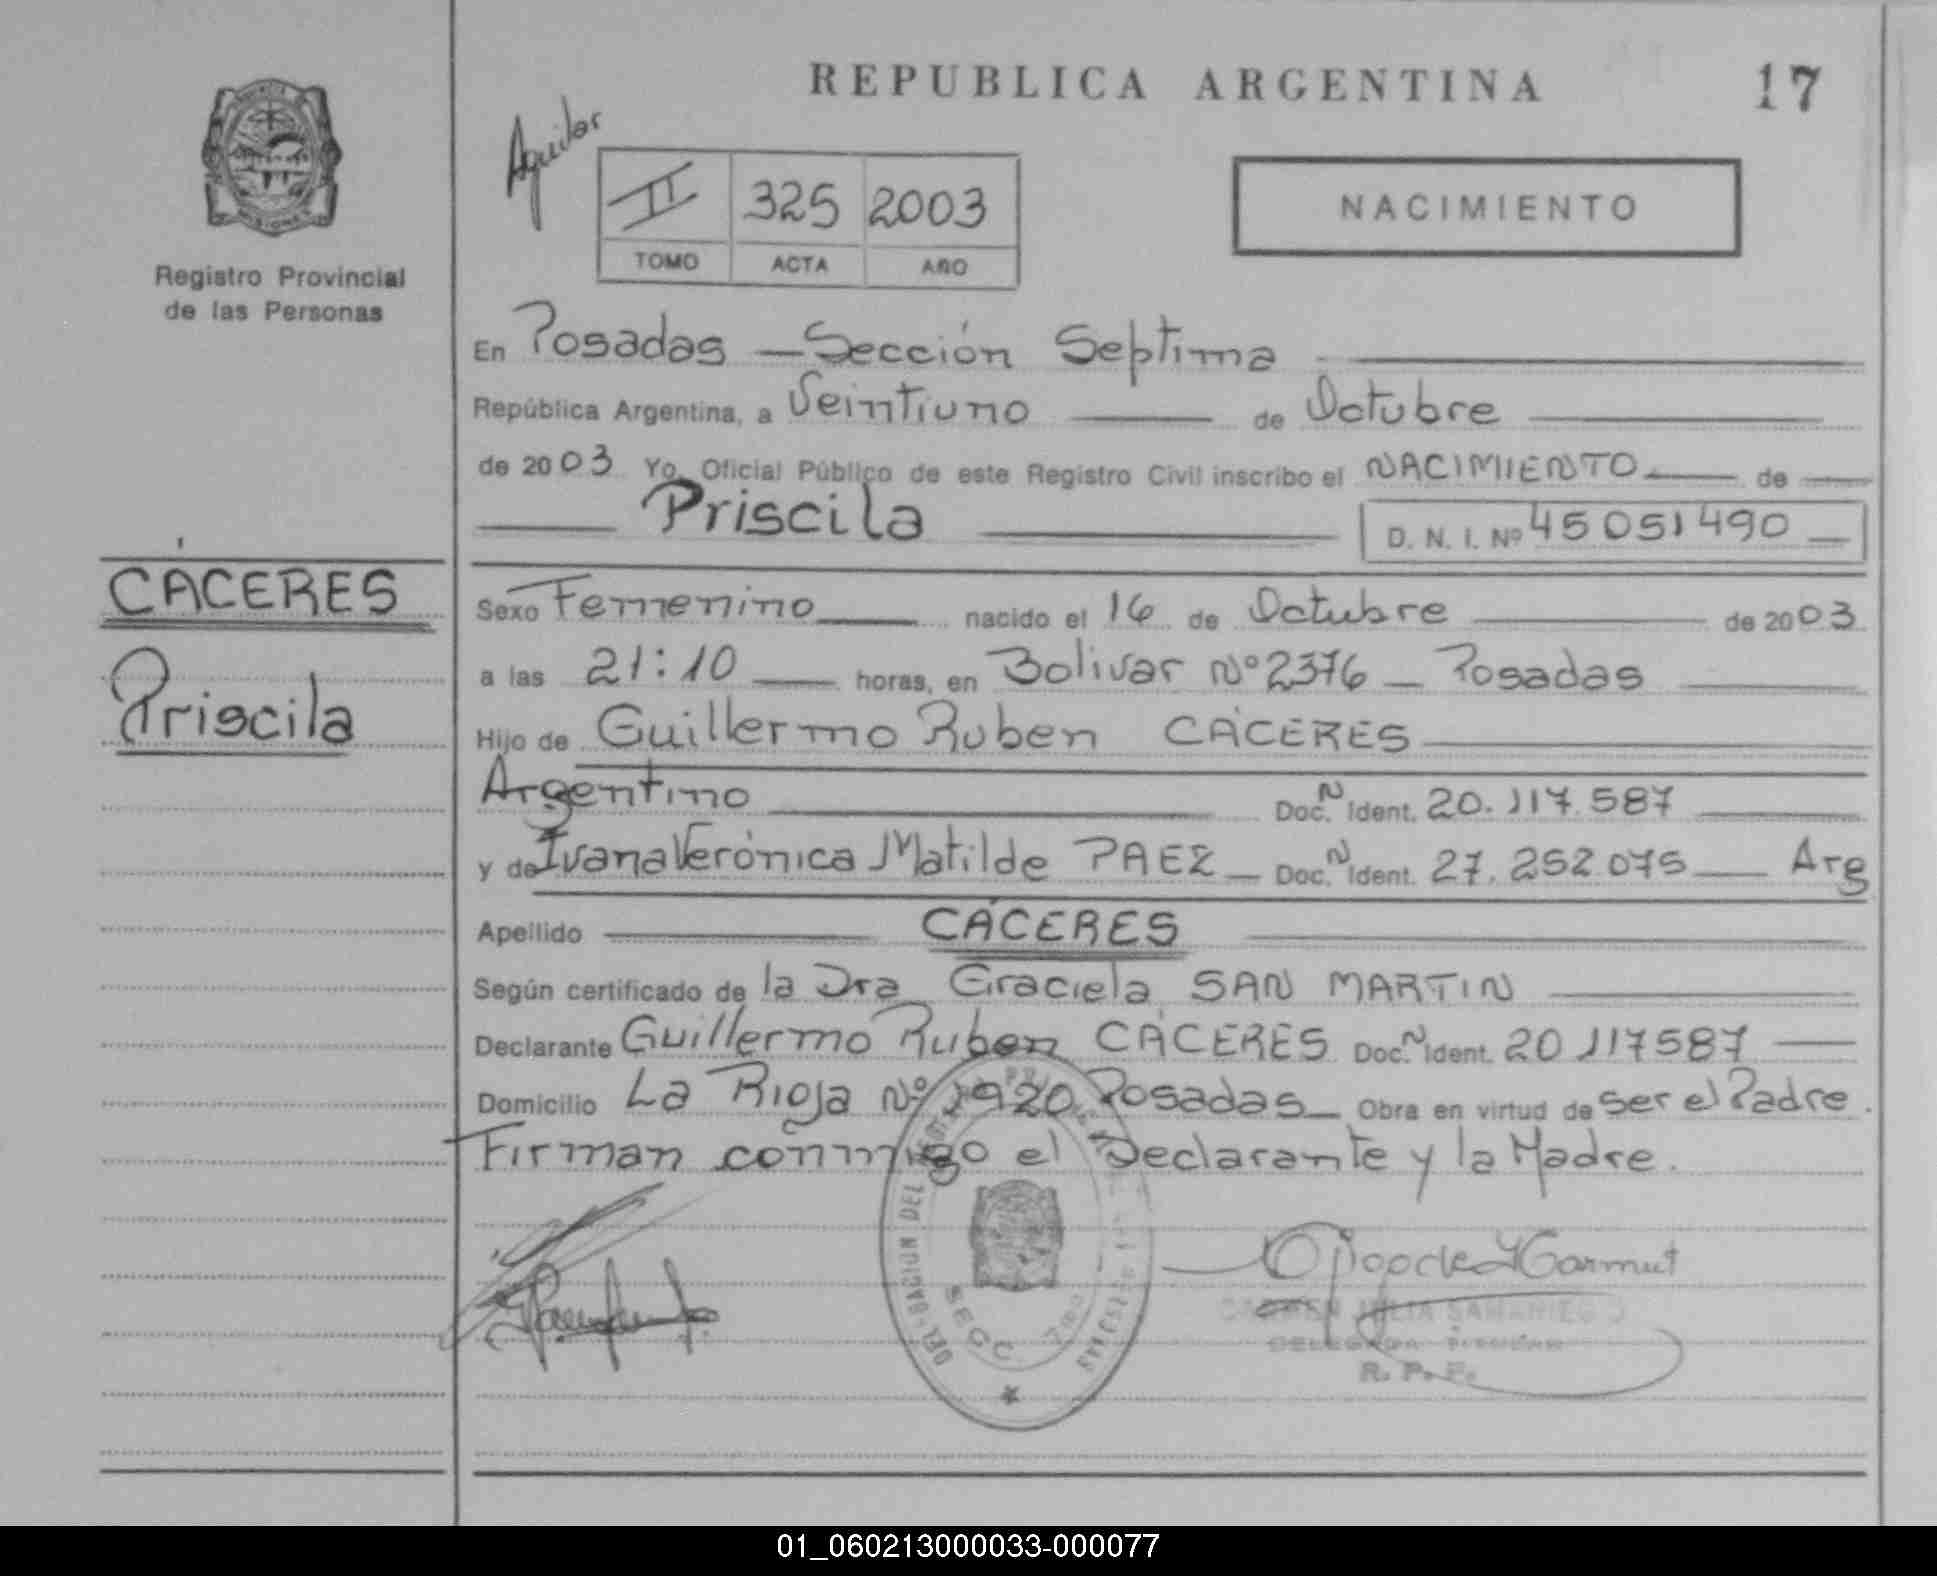 REPUBLICA ARGENTINA
17
Aguilar
II 325 2003
TOMO ACTA AÑO
NACIMIENTO
Registro Provincial
de las Personas
En Posadas — Sección Septima
República Argentina, a Veintiuno de Octubre
de 2003 Yo, Oficial Público de este Registro Civil inscribo el NACIMIENTO de
Priscila
D. N. I. Nº 45051490
CÁCERES
Priscila
Sexo Femenino nacido el 16 de Octubre de 2003
a las 21:10 horas, en Bolivar Nº 2376 — Posadas
Hijo de Guillermo Ruben CÁCERES
Argentino Doc. N Ident. 20.117.587
y de Ivana Verónica Matilde PAEZ — Doc. N Ident. 27.252.075 — Arg
Apellido CÁCERES
Según certificado de la Dra Graciela SAN MARTIN
Declarante Guillermo Ruben CÁCERES Doc. N Ident. 20117587
Domicilio La Rioja Nº 1920 Posadas — Obra en virtud de ser el Padre.
Firman conmigo el Declarante y la Madre.
DELEGACION DEL
SECC. 7ma
MISIONES
CARMEN JULIA SAMANIEGO
DELEGADA TITULAR
R. P. P.
01_060213000033-000077